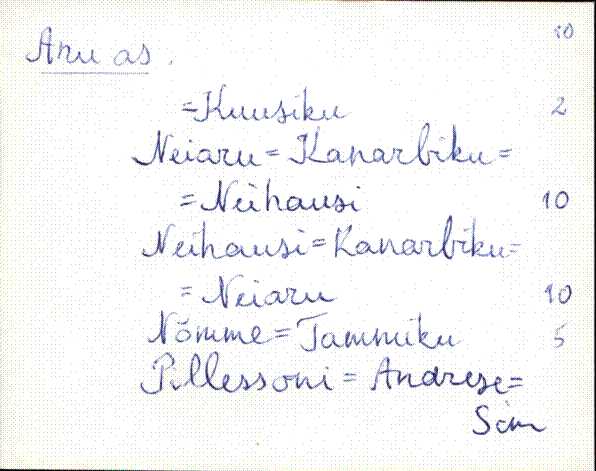 Aru as. 10
=Kuusiku 2
Neiaru=Kanarbiku=
=Neihausi 10
Neihausi=Kanarbiku=
=Neiaru 10
Nõmme=Tammiku 5
Pillessoni=Andrese=
Sim